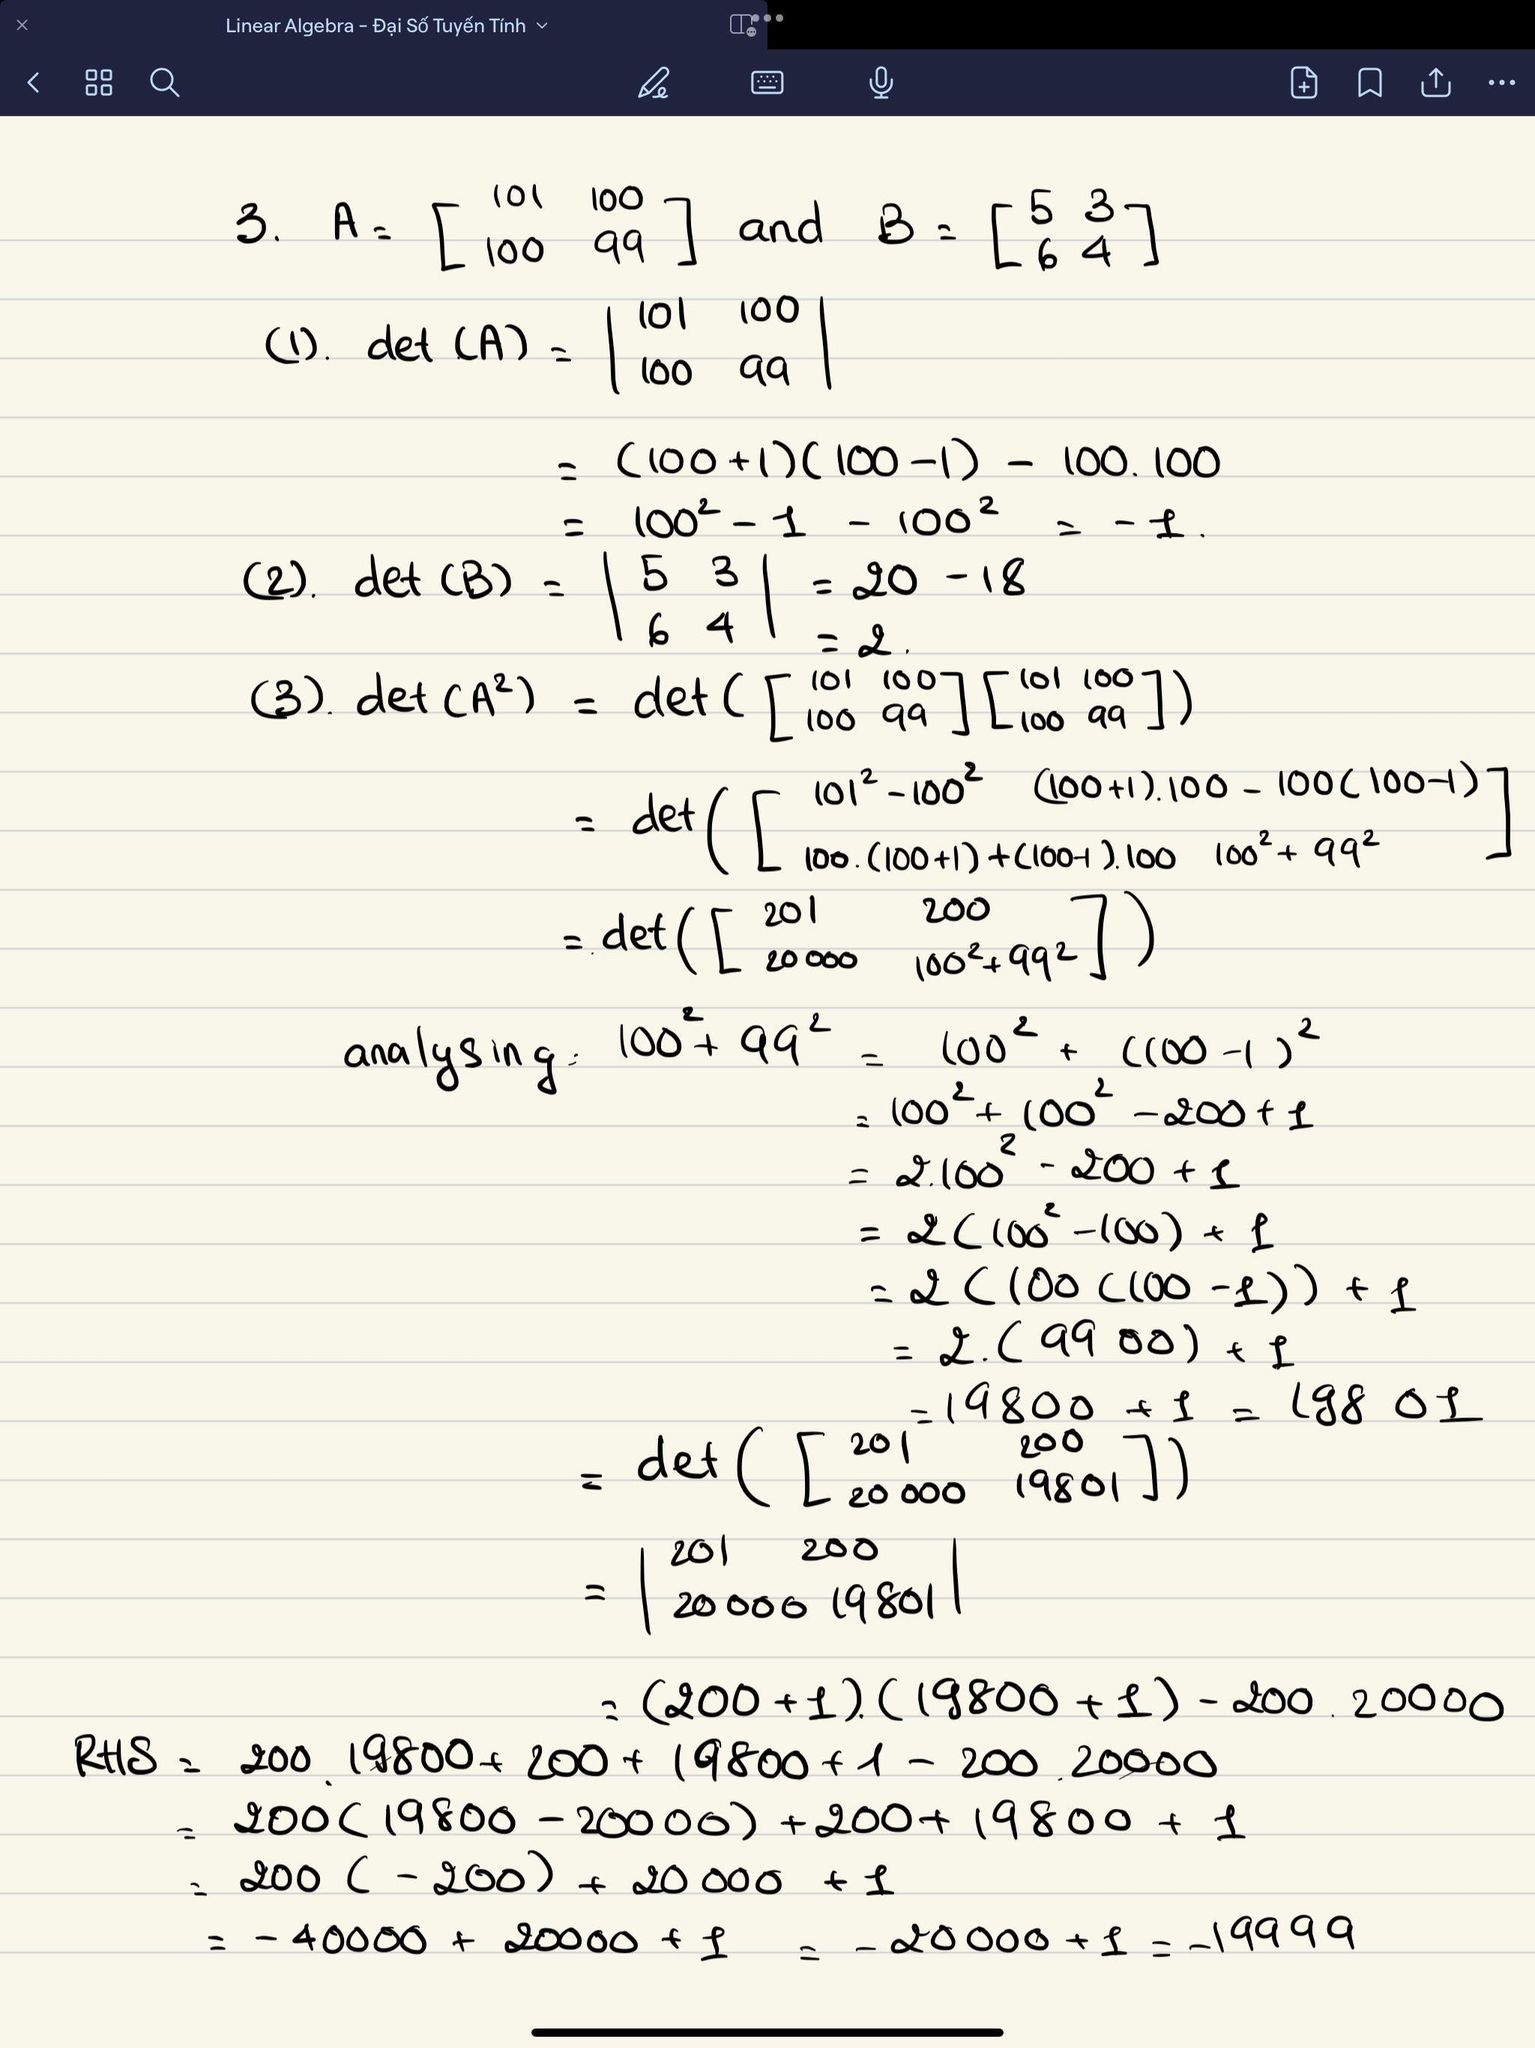 Linear Algebra - Đại Số Tuyến Tính
3. A = [ 101 100
100 99 ] and B = [ 5 3
6 4 ]
(1). det (A) = | 101 100
100 99 |
= (100 + 1)(100 - 1) - 100.100
= 100² - 1 - 100² = - 1.
(2). det (B) = | 5 3
6 4 | = 20 - 18
= 2.
(3). det (A²) = det ( [ 101 100
100 99 ] [ 101 100
100 99 ] )
= det ( [ 101² - 100² (100+1).100 - 100(100-1)
100.(100+1) + (100-1).100 100² + 99² ]
= det ( [ 201 200
20 000 100² + 99² ] )
analysing: 100² + 99² = 100² + (100 - 1)²
= 100² + 100² - 200 + 1
= 2.100² - 200 + 1
= 2 (100² - 100) + 1
= 2 (100 (100 - 1)) + 1
= 2. (99 00) + 1
= 19800 + 1 = 198 01
= det ( [ 201 200
20 000 19801 ] )
= | 201 200
20 000 19801 |
= (200 + 1).(19800 + 1) - 200.20000
RHS = 200.19800 + 200 + 19800 + 1 - 200.20000
= 200 (19800 - 20000) + 200 + 19800 + 1
= 200 (- 200) + 20 000 + 1
= - 40000 + 20000 + 1 = - 20000 + 1 = -19999